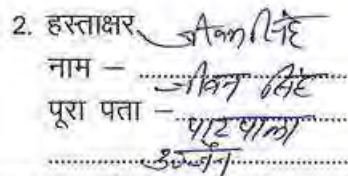 2. हस्ताक्षर जीवन सिंह
नाम – जीवन सिंह
पूरा पता – पाट पाला
उज्जैन